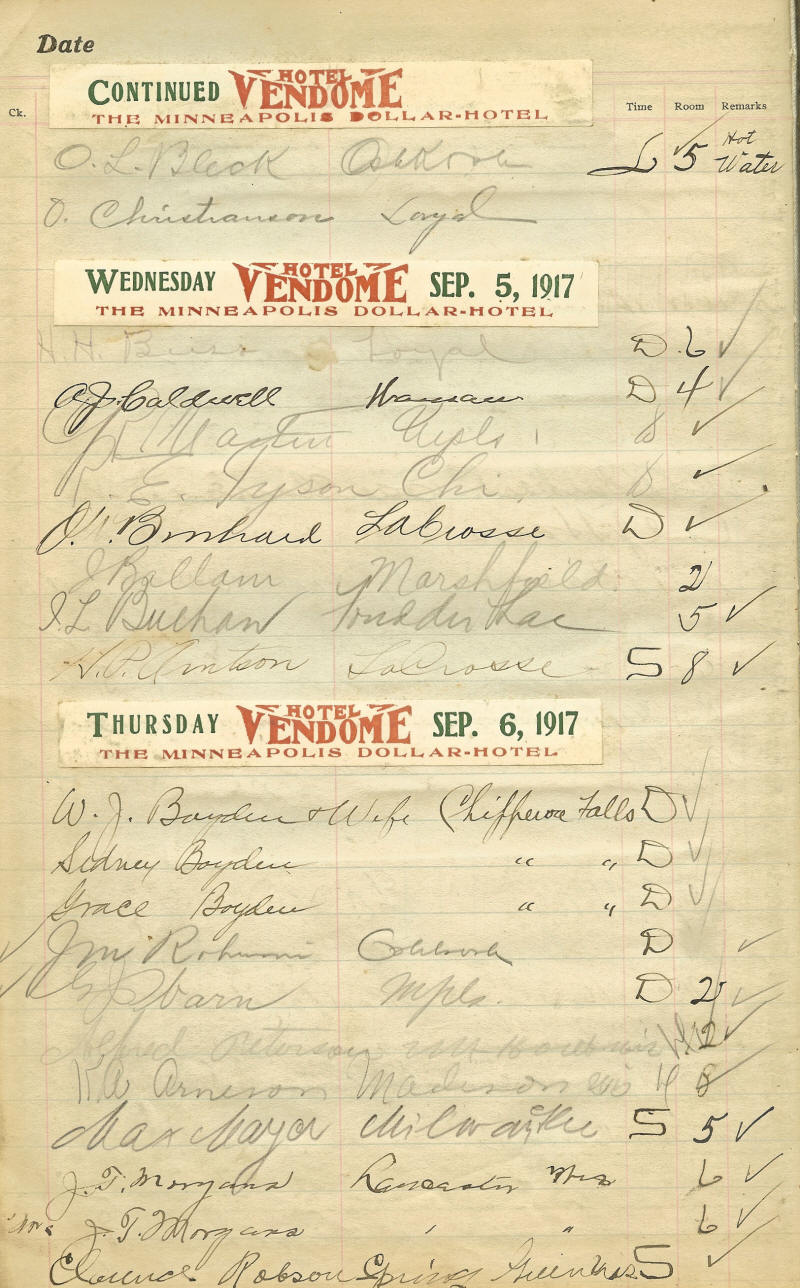 Date
CONTINUED HOTEL VENDOME
THE MINNEAPOLIS DOLLAR-HOTEL
Ck. Time Room Remarks
O. L. Bleck Oshkosh L 5 Hot Water
O. Christianson Loyal
WEDNESDAY HOTEL VENDOME SEP. 5, 1917
THE MINNEAPOLIS DOLLAR-HOTEL
H. H. Loyal D 6
C. J. Caldwell Wausau D 4
Martin Mpls
E. Tyson Chi.
O. Bernhard LaCrosse D
J Ballam Marshfield 2
I L Buchan Fond du Lac 5
H. P. LaCrosse S 8
THURSDAY HOTEL VENDOME SEP. 6, 1917
THE MINNEAPOLIS DOLLAR-HOTEL
W. J. Boyden & Wife Chippewa Falls D
Sidney Boyden " " D
Grace Boyden " " D
J M Oshkosh D
Mpls. D 2
Alfred Peterson 12
K A Arneson Madison Wis H 8
Max Mayer Milwaukee S 5
J. T. Morgans Lancaster Wis 6
Mrs J. T. Morgans ' " 6
Clarence Robson Spring Green Wis S